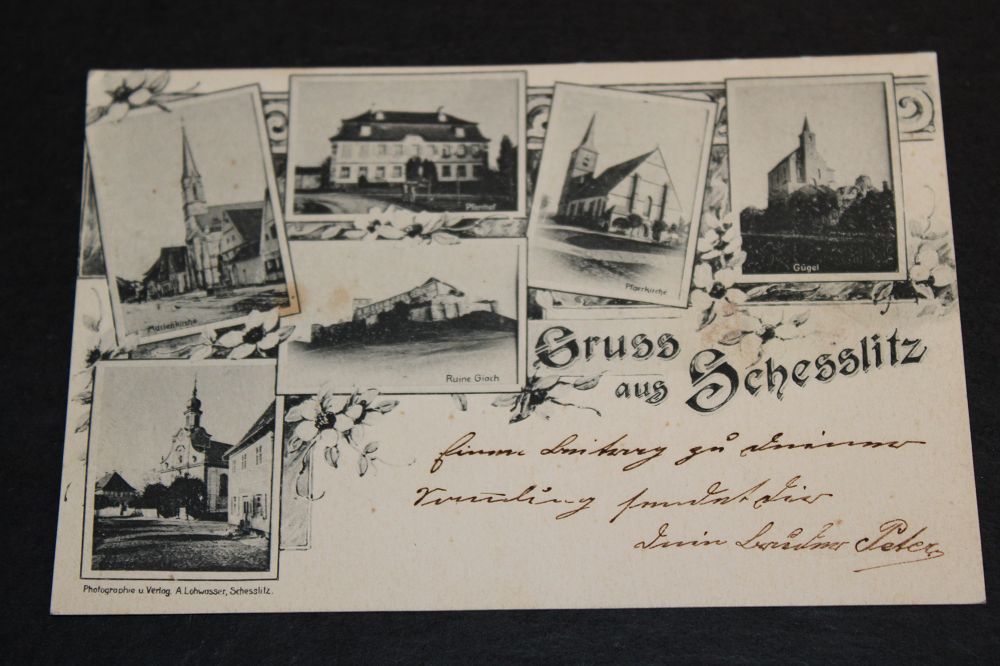 Marienkirche
Pfarrhof
Pfarrkirche
Gügel
Ruine Giech
Gruss
aus Schesslitz
Einen Beitrag zu Deiner
Sammlung sendet Dir
Dein Bruder Peter
Photographie u. Verlag. A. Lohwasser, Schesslitz.